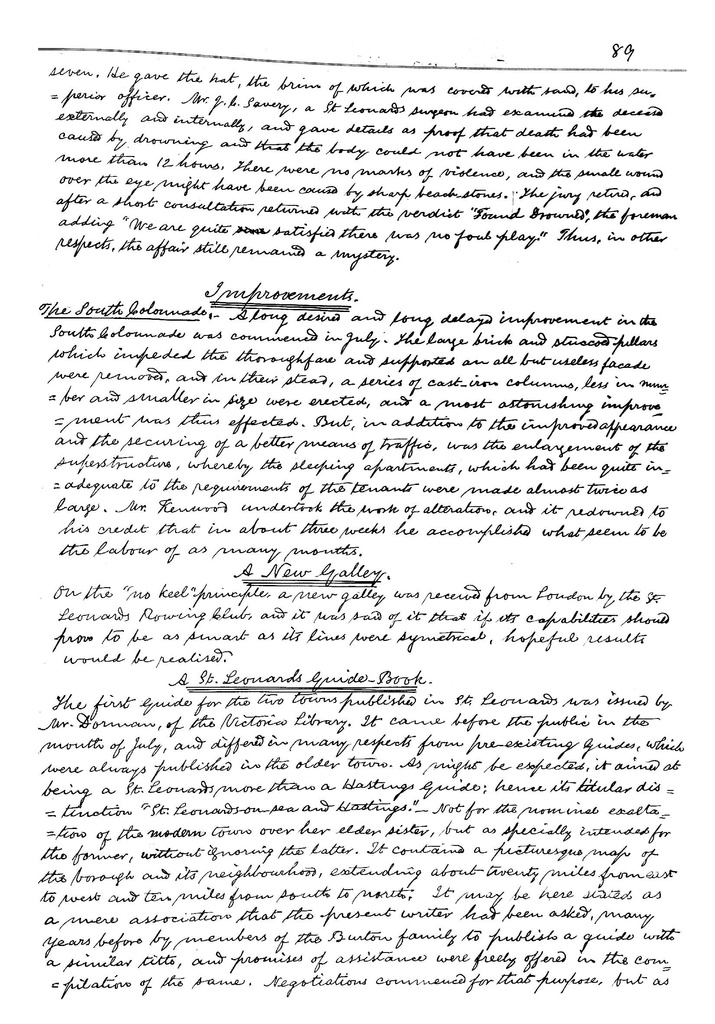 89
seven. He gave the hat, the brim of which was covered with sand, to his su-
=perior officer. Mr. J. h. Savery, a St Leonards surgeon had examined the deceased
externally and internally, and gave details as proof that death had been
caused by drowning and that the body could not have been in the water
more than 12 hours. There were no marks of violence, and the small wound
over the eye might have been caused by sharp beach stones. The jury retired, and
after a short consultation returned with the verdict "Found Drowned", the foreman
adding "We are quite satisfied there was no foul play." Thus, in other
respects, the affair still remained a mystery.
Improvements.
The South Colonnade.- A long desired and long delayed improvement in the
South Colonnade was commenced in July. The large brick and stuccoed pillars
which impeded the thoroughfare and supported an all but useless facade
were removed, and in their stead, a series of cast-iron columns, less in num-
=ber and smaller in size were erected, and a most astonishing improve-
=ment was thus effected. But, in addition to the improved appearance
and the securing of a better means of traffic, was the enlargement of the
superstructure, whereby the sleeping apartments, which had been quite in-
=adequate to the requirements of the tenants were made almost twice as
large. Mr. Kenwood undertook the work of alteration, and it redowned to
his credit that in about three weeks he accomplished what seem to be
the labour of as many months.
A New Galley.
On the "no keel" principle, a new galley was received from London by the St.
Leonards Rowing Club, and it was said of it that if its capabilities should
prove to be as smart as its lines were symetrical, hopeful results
would be realised.
A St. Leonards Guide-Book.
The first Guide for the two towns published in St. Leonards was issued by
Mr. Dorman, of the Victoria Library. It came before the public in the
month of July, and differed in many respects from pre-existing Guides, which
were always published in the older town. As might be expected, it aimed at
being a St. Leonards more than a Hastings Guide; hence its titular dis-
=tinction "St. Leonards-on-sea and Hastings."- Not for the nominal exalta-
=tion of the modern town over her elder sister, but as specially intended for
the former, without ignoring the latter. It contained a picturesque map of
the borough and its neighbourhood, extending about twenty miles from east
to west and ten miles from south to north. It may be here stated as
a mere association that the present writer had been asked, many
years before by members of the Burton family to publish a guide with
a similar title, and promises of assistance were freely offered in the com-
=pilation of the same. Negotiations commenced for that purpose, but as